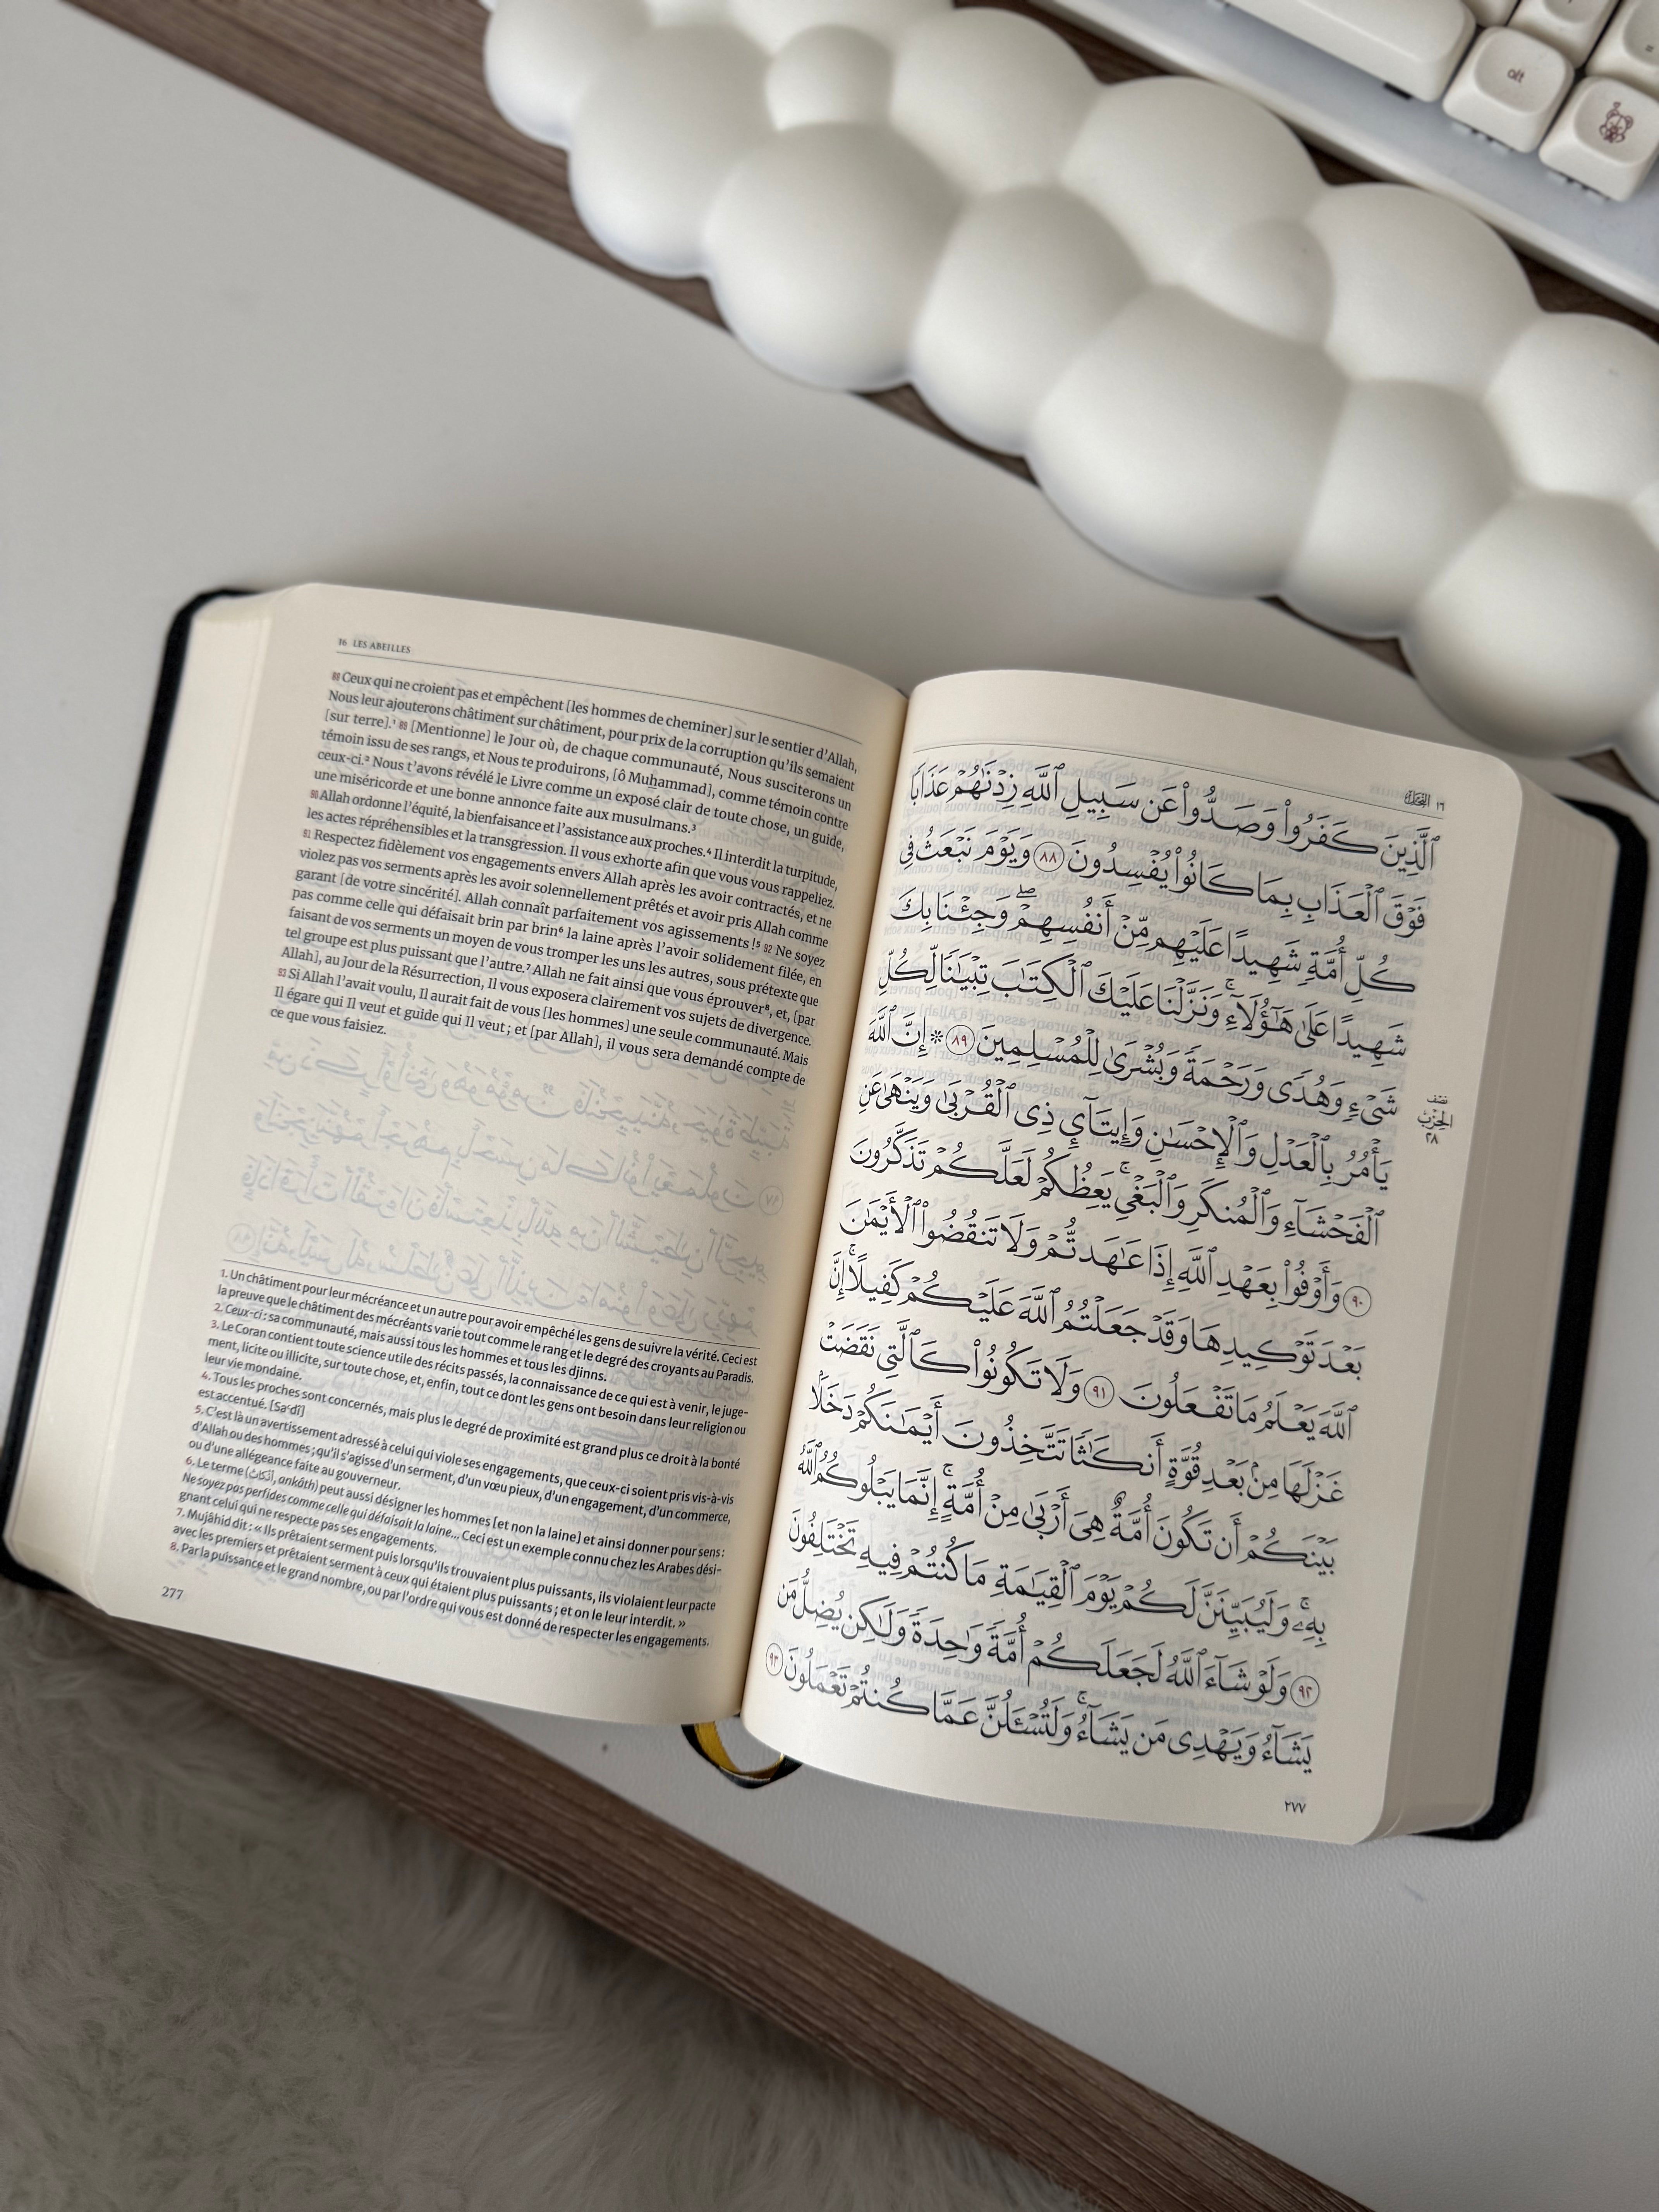 alt
16 LES ABEILLES
88 Ceux qui ne croient pas et empêchent [les hommes de cheminer] sur le sentier d'Allah,
Nous leur ajouterons châtiment sur châtiment, pour prix de la corruption qu'ils semaient
[sur terre].¹ 89 [Mentionne] le Jour où, de chaque communauté, Nous susciterons un
témoin issu de ses rangs, et Nous te produirons, [ô Muḥammad], comme témoin contre
ceux-ci.² Nous t'avons révélé le Livre comme un exposé clair de toute chose, un guide,
une miséricorde et une bonne annonce faite aux musulmans.³
90 Allah ordonne l'équité, la bienfaisance et l'assistance aux proches.⁴ Il interdit la turpitude,
les actes répréhensibles et la transgression. Il vous exhorte afin que vous vous rappeliez.
91 Respectez fidèlement vos engagements envers Allah après les avoir contractés, et ne
violez pas vos serments après les avoir solennellement prêtés et avoir pris Allah comme
garant [de votre sincérité]. Allah connaît parfaitement vos agissements !⁵ 92 Ne soyez
pas comme celle qui défaisait brin par brin⁶ la laine après l'avoir solidement filée, en
faisant de vos serments un moyen de vous tromper les uns les autres, sous prétexte que
tel groupe est plus puissant que l'autre.⁷ Allah ne fait ainsi que vous éprouver⁸, et, [par
Allah], au Jour de la Résurrection, Il vous exposera clairement vos sujets de divergence.
93 Si Allah l'avait voulu, Il aurait fait de vous [les hommes] une seule communauté. Mais
Il égare qui Il veut et guide qui Il veut ; et [par Allah], il vous sera demandé compte de
ce que vous faisiez.
1. Un châtiment pour leur mécréance et un autre pour avoir empêché les gens de suivre la vérité. Ceci est
la preuve que le châtiment des mécréants varie tout comme le rang et le degré des croyants au Paradis.
2. Ceux-ci : sa communauté, mais aussi tous les hommes et tous les djinns.
3. Le Coran contient toute science utile des récits passés, la connaissance de ce qui est à venir, le juge-
ment, licite ou illicite, sur toute chose, et, enfin, tout ce dont les gens ont besoin dans leur religion ou
leur vie mondaine.
4. Tous les proches sont concernés, mais plus le degré de proximité est grand plus ce droit à la bonté
est accentué. [Sa'dî]
5. C'est là un avertissement adressé à celui qui viole ses engagements, que ceux-ci soient pris vis-à-vis
d'Allah ou des hommes ; qu'il s'agisse d'un serment, d'un vœu pieux, d'un engagement, d'un commerce,
ou d'une allégeance faite au gouverneur.
6. Le terme (أَنْكَاثٌ, ankâth) peut aussi désigner les hommes [et non la laine] et ainsi donner pour sens :
Ne soyez pas perfides comme celle qui défaisait la laine... Ceci est un exemple connu chez les Arabes dési-
gnant celui qui ne respecte pas ses engagements.
7. Mujâhid dit : « Ils prêtaient serment puis lorsqu'ils trouvaient plus puissants, ils violaient leur pacte
avec les premiers et prêtaient serment à ceux qui étaient plus puissants ; et on le leur interdit. »
8. Par la puissance et le grand nombre, ou par l'ordre qui vous est donné de respecter les engagements.
277
١٦ النحل
ٱلَّذِينَ كَفَرُوا۟ وَصَدُّوا۟ عَن سَبِيلِ ٱللَّهِ زِدْنَٰهُمْ عَذَابًا
فَوْقَ ٱلْعَذَابِ بِمَا كَانُوا۟ يُفْسِدُونَ ٨٨ وَيَوْمَ نَبْعَثُ فِى
كُلِّ أُمَّةٍ شَهِيدًا عَلَيْهِم مِّنْ أَنفُسِهِمْ ۖ وَجِئْنَا بِكَ
شَهِيدًا عَلَىٰ هَٰٓؤُلَآءِ ۚ وَنَزَّلْنَا عَلَيْكَ ٱلْكِتَٰبَ تِبْيَٰنًا لِّكُلِّ
شَىْءٍ وَهُدًى وَرَحْمَةً وَبُشْرَىٰ لِلْمُسْلِمِينَ ٨٩ ۞ إِنَّ ٱللَّهَ
يَأْمُرُ بِٱلْعَدْلِ وَٱلْإِحْسَٰنِ وَإِيتَآئِ ذِى ٱلْقُرْبَىٰ وَيَنْهَىٰ عَنِ
ٱلْفَحْشَآءِ وَٱلْمُنكَرِ وَٱلْبَغْىِ ۚ يَعِظُكُمْ لَعَلَّكُمْ تَذَكَّرُونَ
٩٠ وَأَوْفُوا۟ بِعَهْدِ ٱللَّهِ إِذَا عَٰهَدتُّمْ وَلَا تَنقُضُوا۟ ٱلْأَيْمَٰنَ
بَعْدَ تَوْكِيدِهَا وَقَدْ جَعَلْتُمُ ٱللَّهَ عَلَيْكُمْ كَفِيلًا ۚ إِنَّ
ٱللَّهَ يَعْلَمُ مَا تَفْعَلُونَ ٩١ وَلَا تَكُونُوا۟ كَٱلَّتِى نَقَضَتْ
غَزْلَهَا مِنۢ بَعْدِ قُوَّةٍ أَنكَٰثًا تَتَّخِذُونَ أَيْمَٰنَكُمْ دَخَلًۢا
بَيْنَكُمْ أَن تَكُونَ أُمَّةٌ هِىَ أَرْبَىٰ مِنْ أُمَّةٍ ۚ إِنَّمَا يَبْلُوكُمُ ٱللَّهُ
بِهِۦ ۚ وَلَيُبَيِّنَنَّ لَكُمْ يَوْمَ ٱلْقِيَٰمَةِ مَا كُنتُمْ فِيهِ تَخْتَلِفُونَ
٩٢ وَلَوْ شَآءَ ٱللَّهُ لَجَعَلَكُمْ أُمَّةً وَٰحِدَةً وَلَٰكِن يُضِلُّ مَن
يَشَآءُ وَيَهْدِى مَن يَشَآءُ ۚ وَلَتُسْـَٔلُنَّ عَمَّا كُنتُمْ تَعْمَلُونَ ٩٣
نصف
الحزب
٢٨
٢٧٧